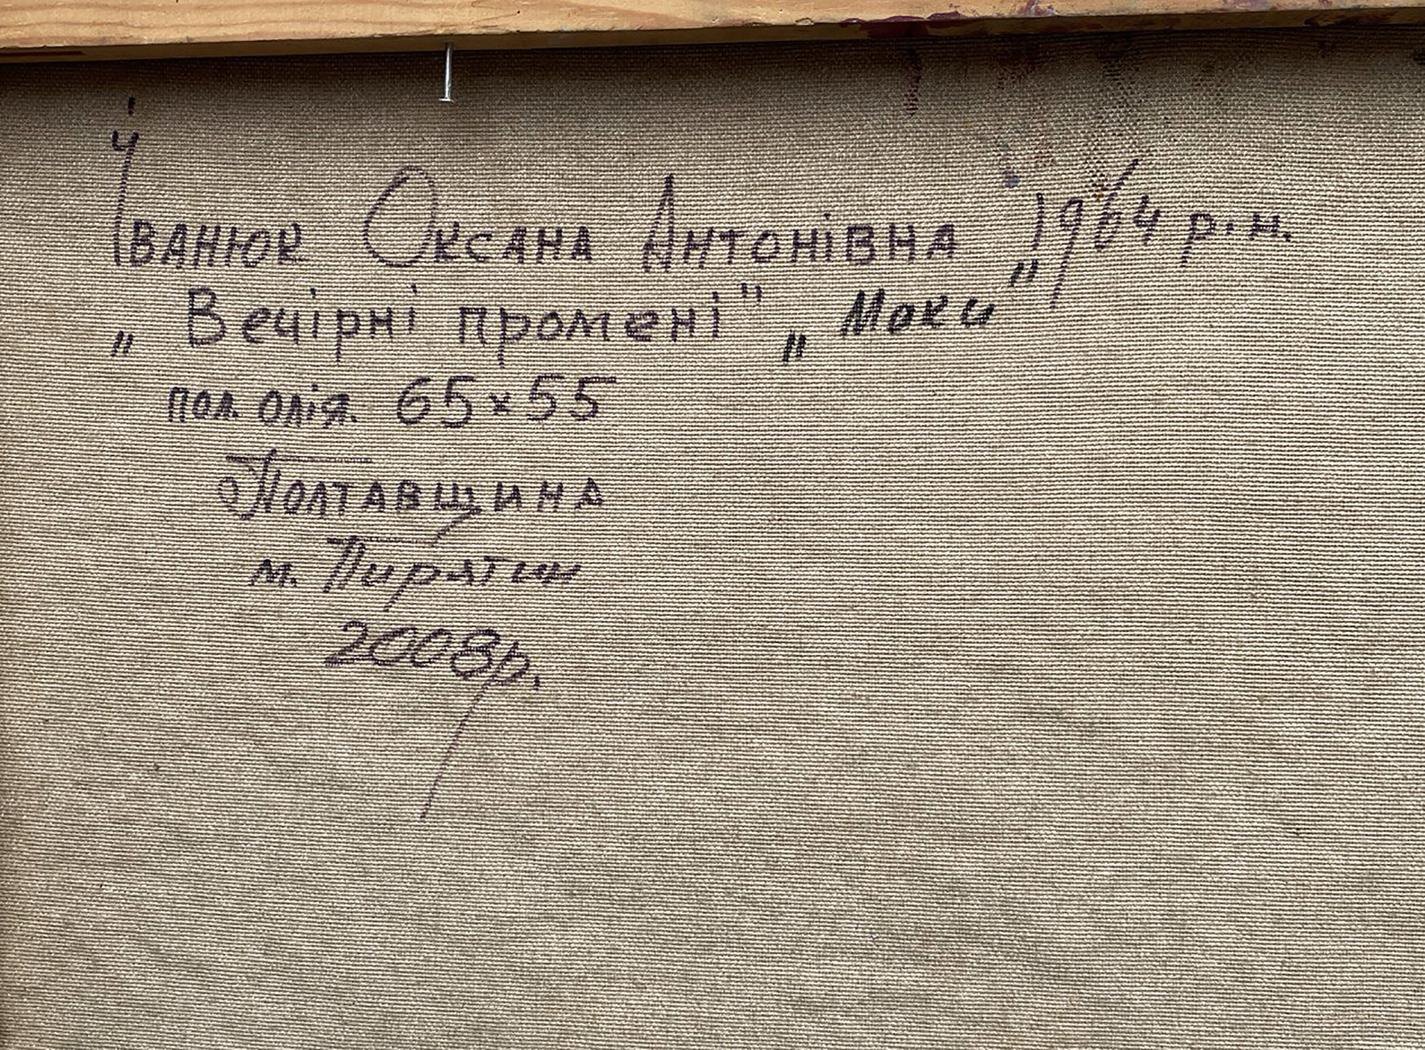 Іванюк Оксана Антонівна 1964 р.н.
„Вечірні промені" „Маки"
пол. олія. 65×55
Полтавщина
м. Пирятин
2008р.